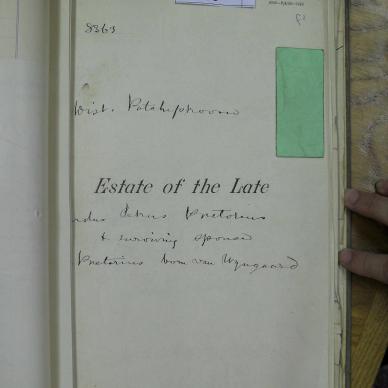 8863
Dist. Potchefstroom
Estate of the Late
Petrus Pretorius
& surviving spouse
Pretorius born van Wyngaard